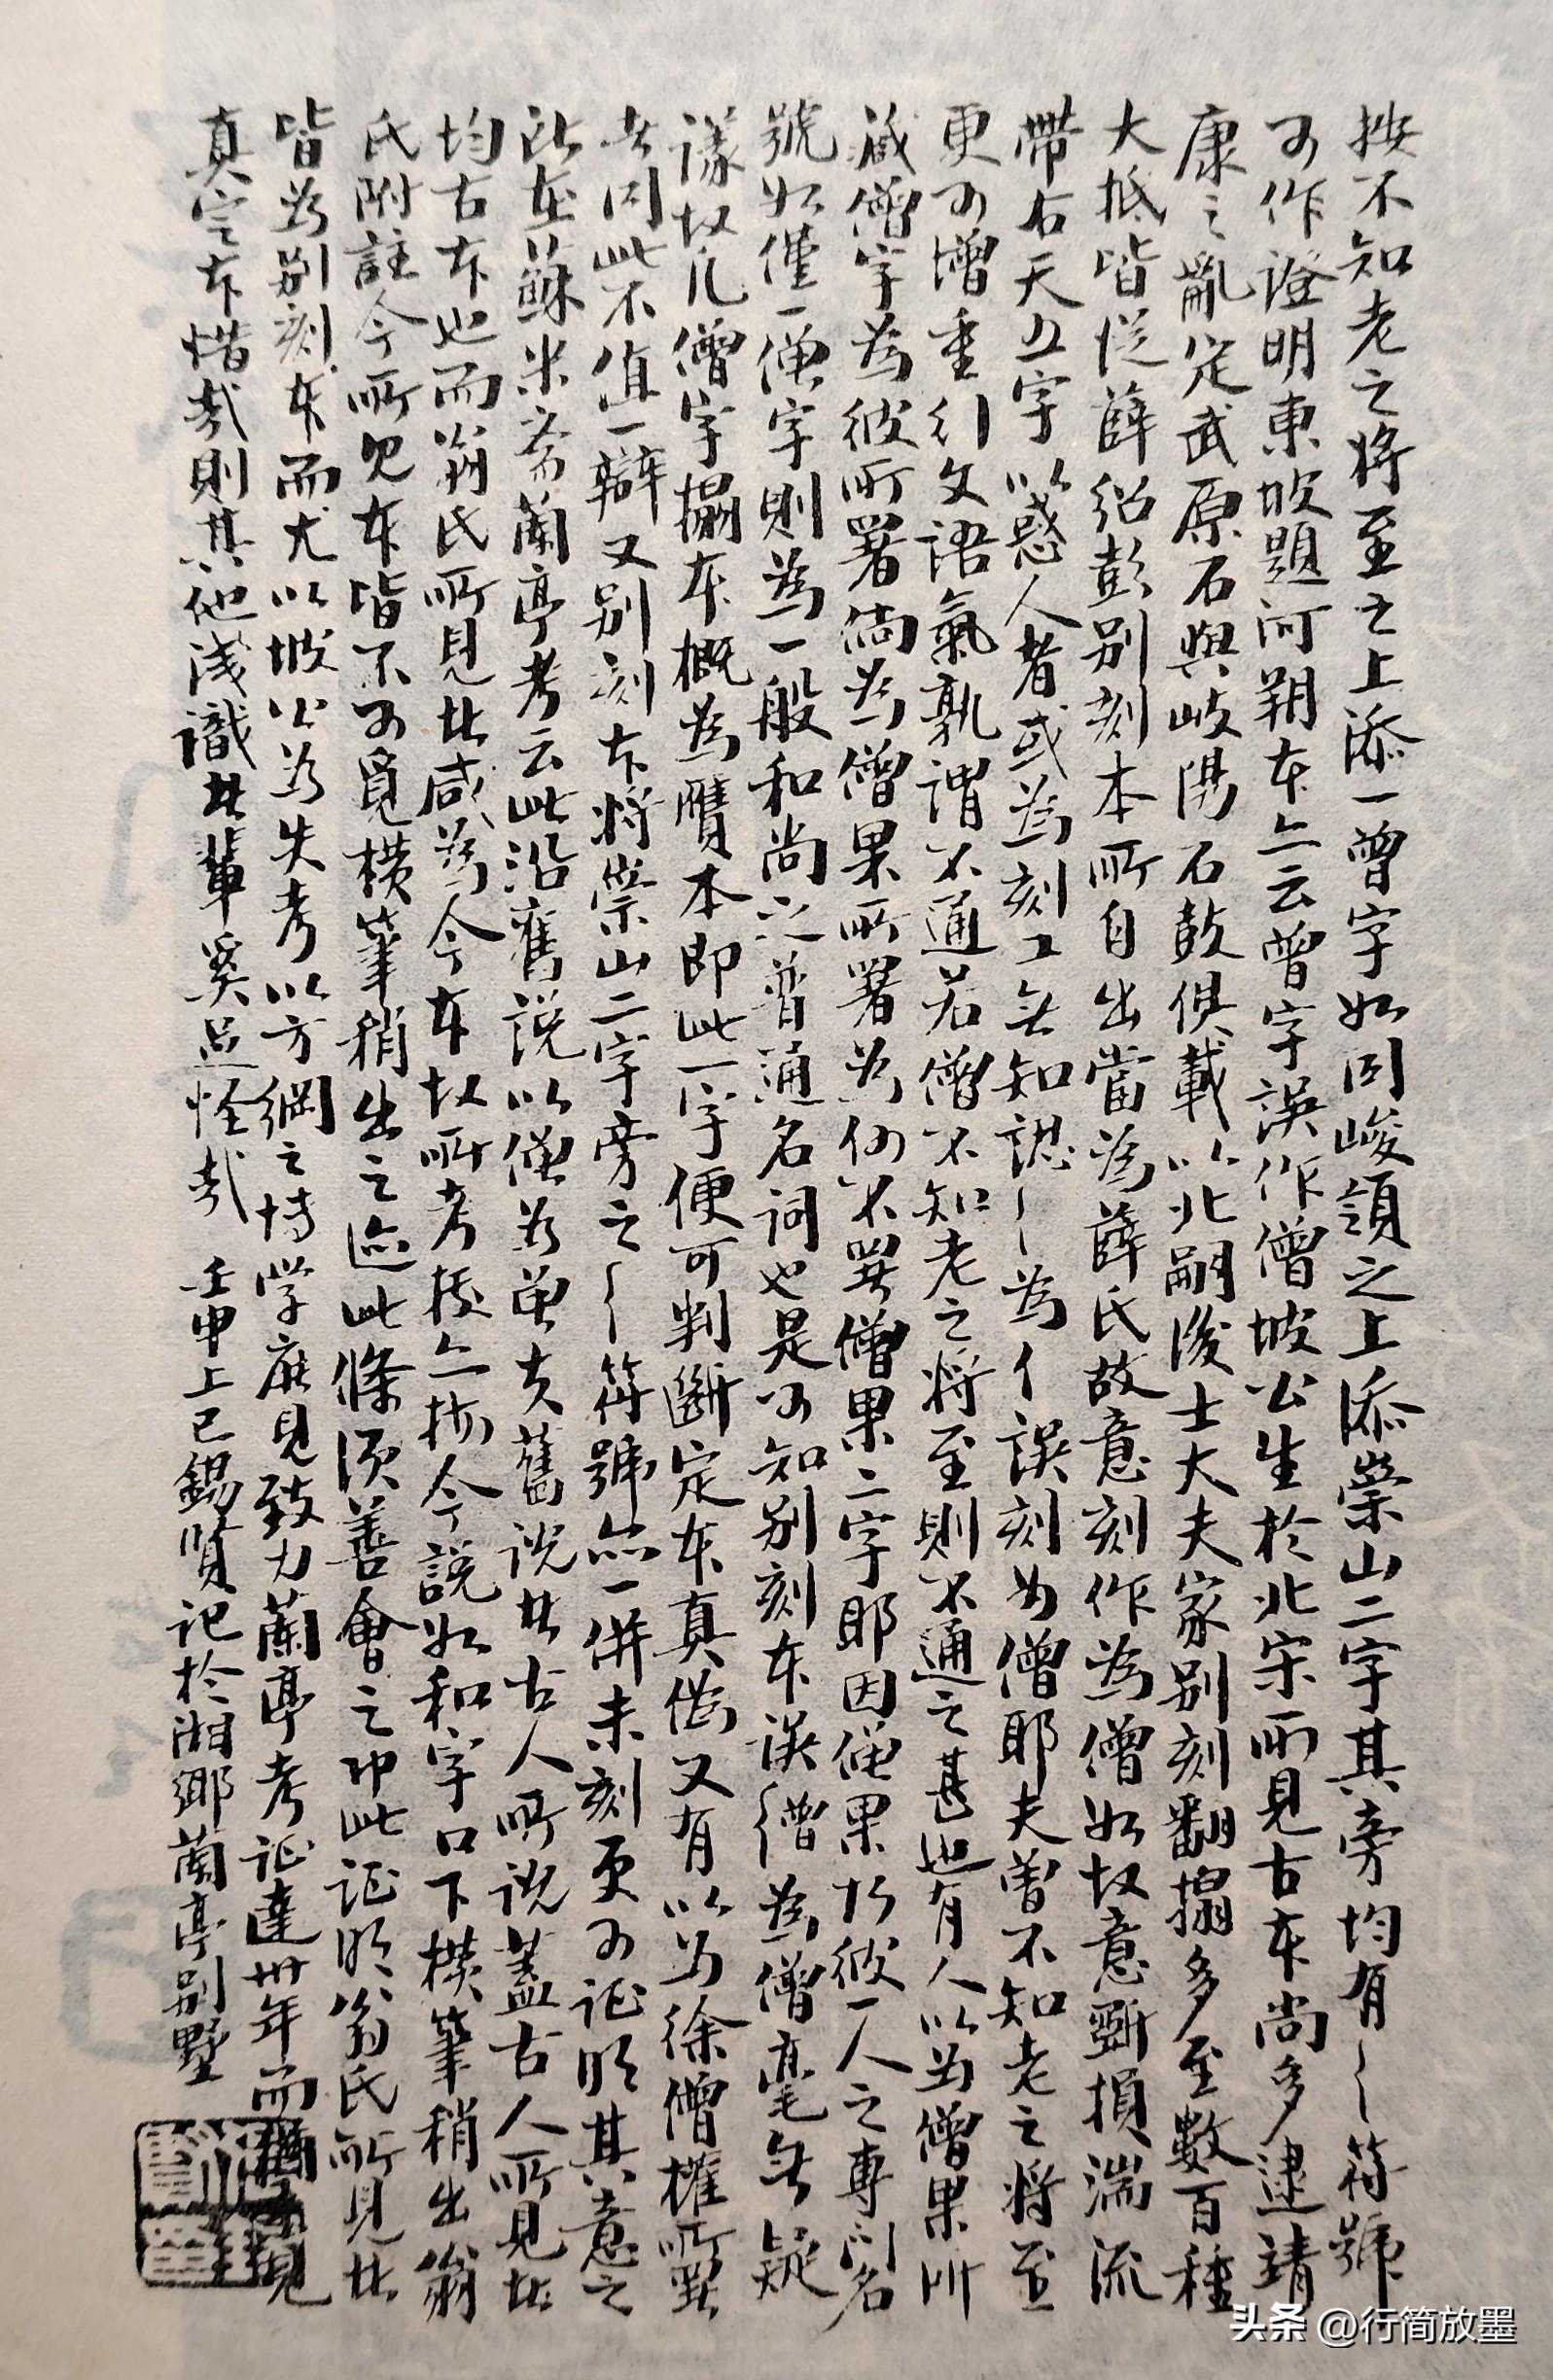 按不知老之将至之上添一曾字如同峻領之上添崇山二字其旁均有〵符號
可作證明東坡題河朔本亦云曾字誤作僧坡公生於北宋所見古本尚多逮靖
康之亂定武原石與岐陽石鼓俱載以北嗣後士大夫家别刻翻搨多至數百種
大抵皆從薛紹彭别刻本所自出當為薛氏故意刻作為僧如故意斲損湍流
帶右天五字以惑人者或為刻工無知誤〵為亻誤刻為僧耶夫曾不知老之将至
更可增重行文語氣孰謂不通若僧不知老之将至則不通之甚也有人以為僧果所
藏僧字為彼所署倘為僧果所署為何不署僧果二字耶因僧果乃彼一人之專門名
號如僅一僧字則為一般和尚之普通名詞也是可知别刻本誤〵僧為僧毫無疑
議故凡僧字搨本概為贋本即此一字便可判斷定本真偽又有以為徐僧權所署
者同此不值一辯又别刻本将崇山二字旁之〵符號亦一併未刻更可证明其意之
所在蘇米斋蘭亭考云此沿舊說以僧為曾夫舊说者古人所说蓋古人所見者
均古本也而翁氏所見者咸為今本故所考核亦极今說如和字口下横筆稍出翁
氏附註今所見本皆不可覓横筆稍出之迹此條須善會之即此证明翁氏所見者
皆為别刻本而尤以坡公為失考以方綱之博学廣見致力蘭亭考证達卅年而見
真定本惜哉則其他浅識者輩奚足怪哉 壬申上巳錫賢记於湘鄉蘭亭别墅
头条 @行简放墨